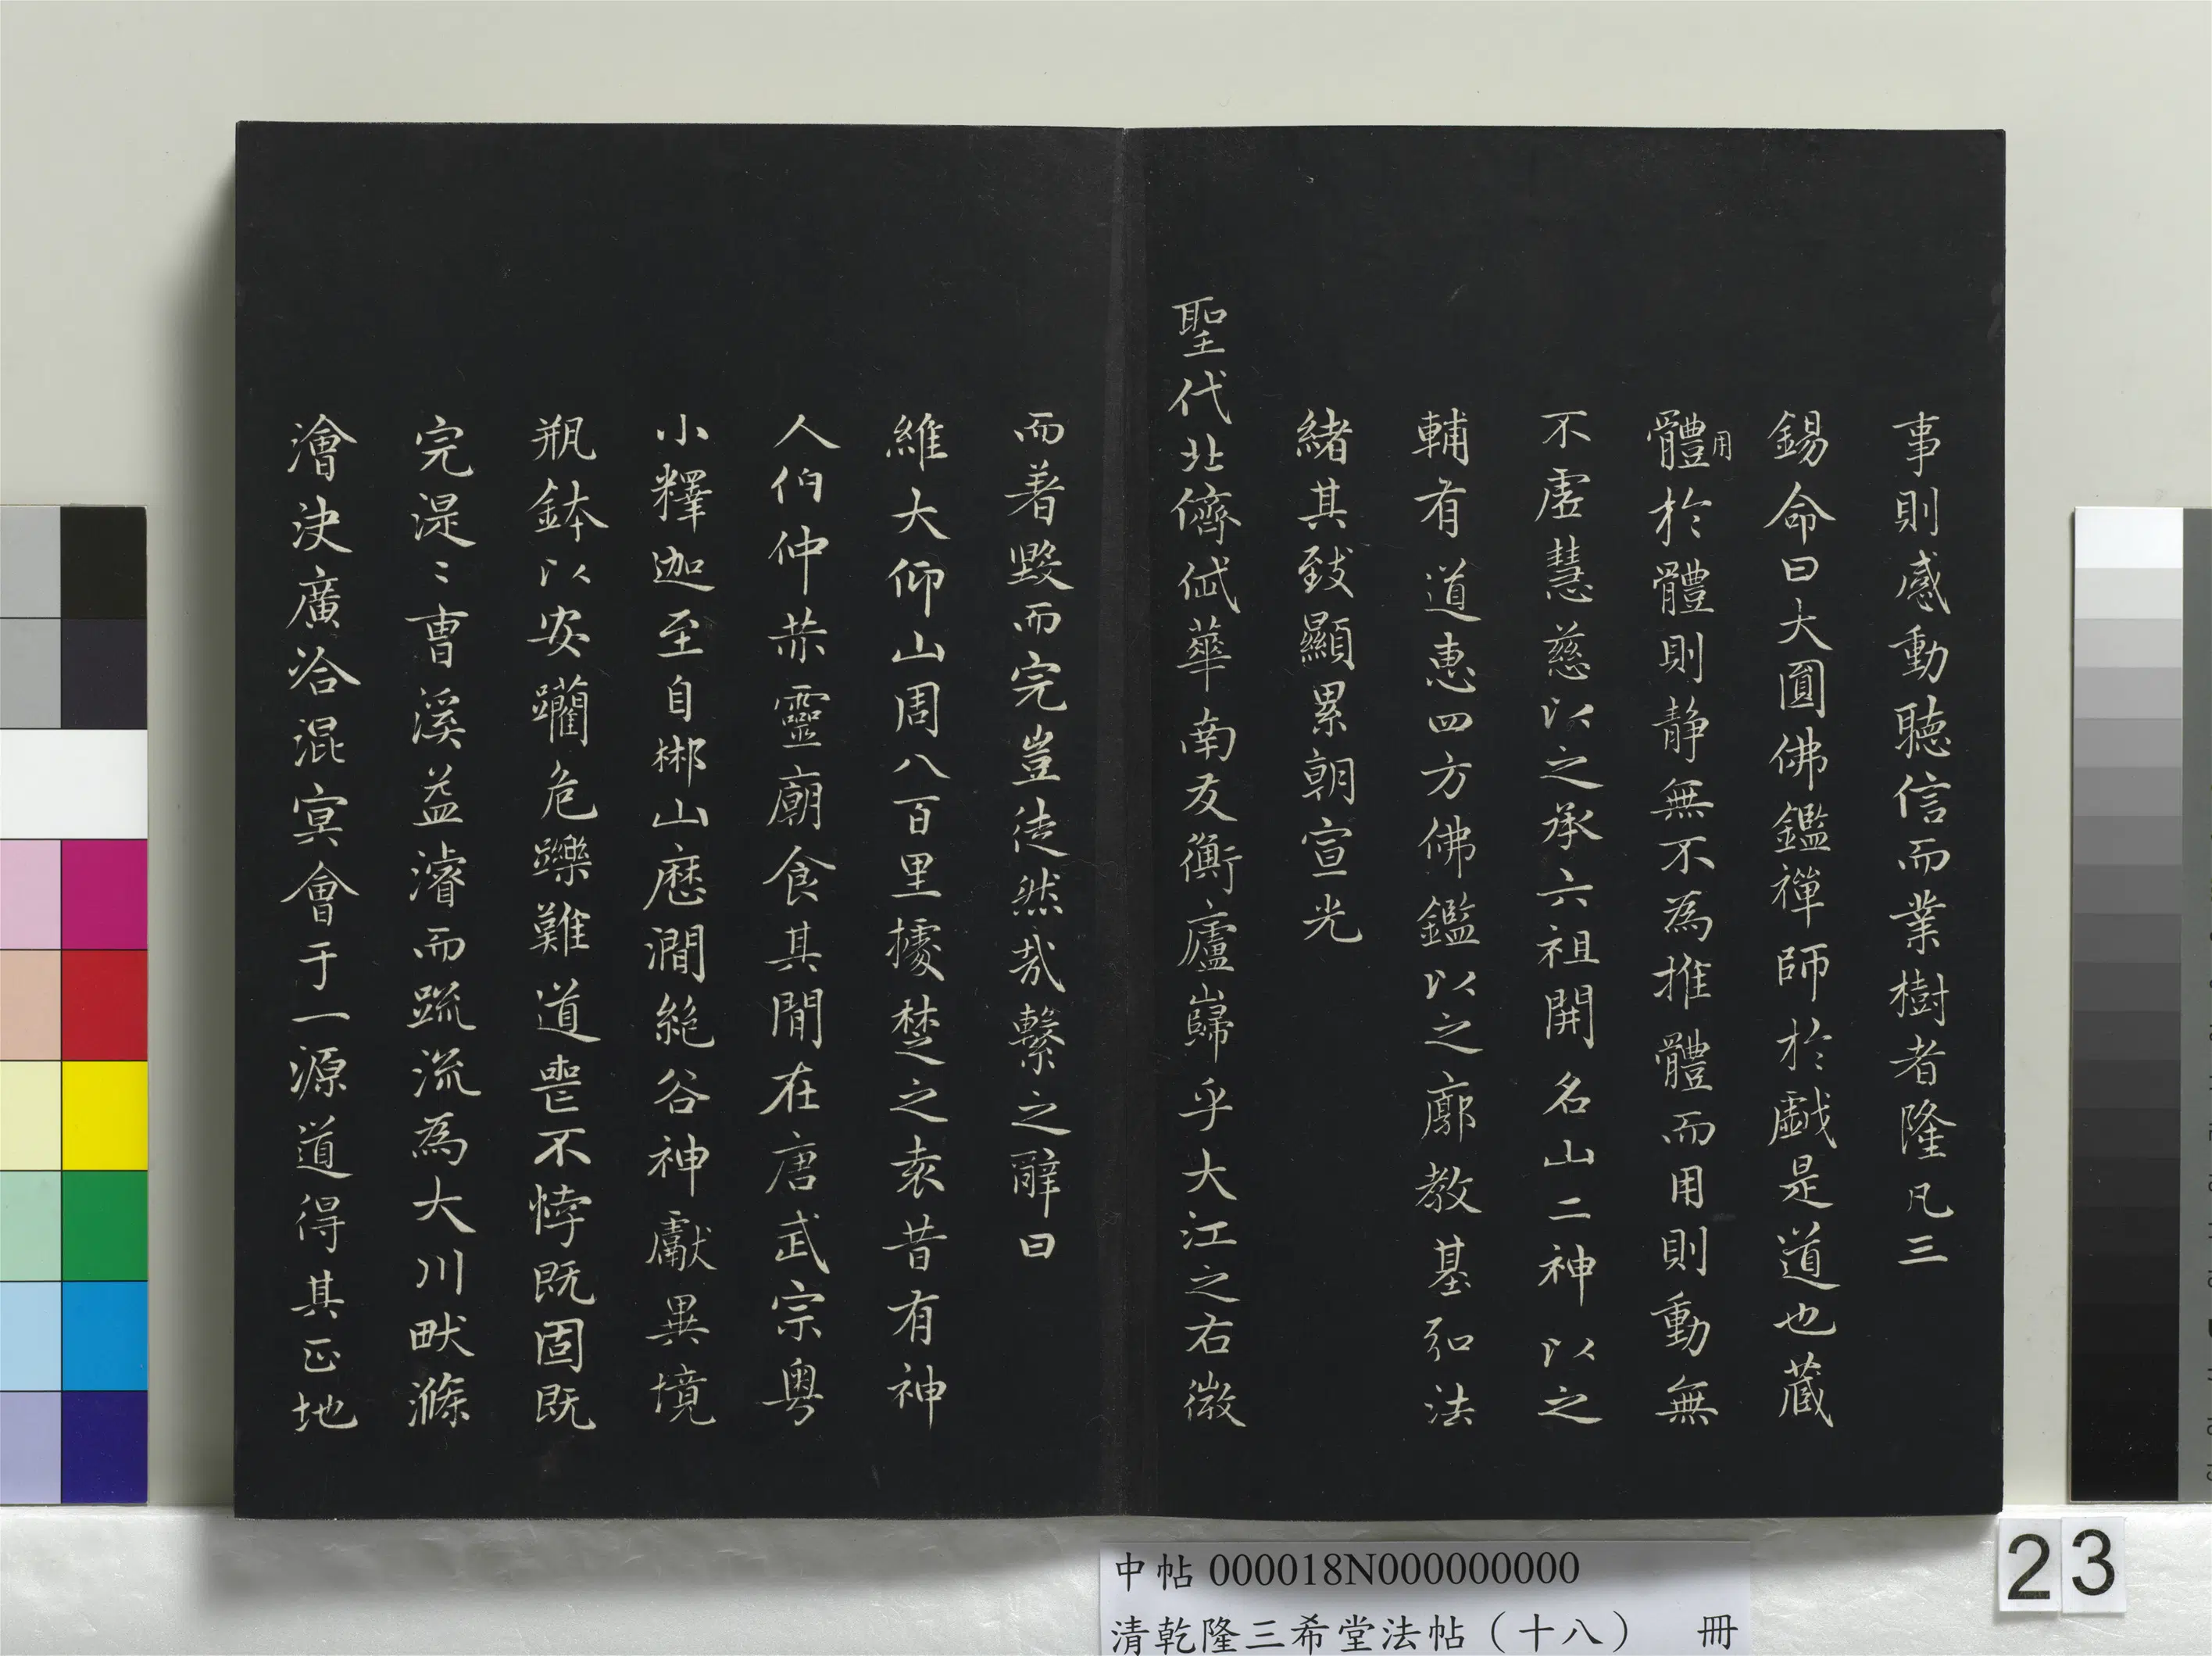 事則感動聽信而業樹者隆凡三
錫命曰大圓佛鑑禪師於戲是道也蔵
體用於體則靜無不為推體而用則動無
不虛慧慈以之承六祖開名山二神以之
輔有道惠四方佛鑑以之廓教基弘法
緒其致顯累朝宣光
聖代北儕岱華南友衡廬巋乎大江之右徽
而著毀而完豈徒然哉繫之辭曰
維大仰山周八百里據楚之袁昔有神
人伯仲恭靈廟食其間在唐武宗粵
小釋迦至自郴山歷澗絕谷神獻異境
瓶鉢以安躪危躒難道喪不悖既固既
完湜〻曹溪益濬而疏流為大川畎滌
澮決廣洽混冥會于一源道得其正地
中帖 000018N000000000
清乾隆三希堂法帖（十八） 冊
23